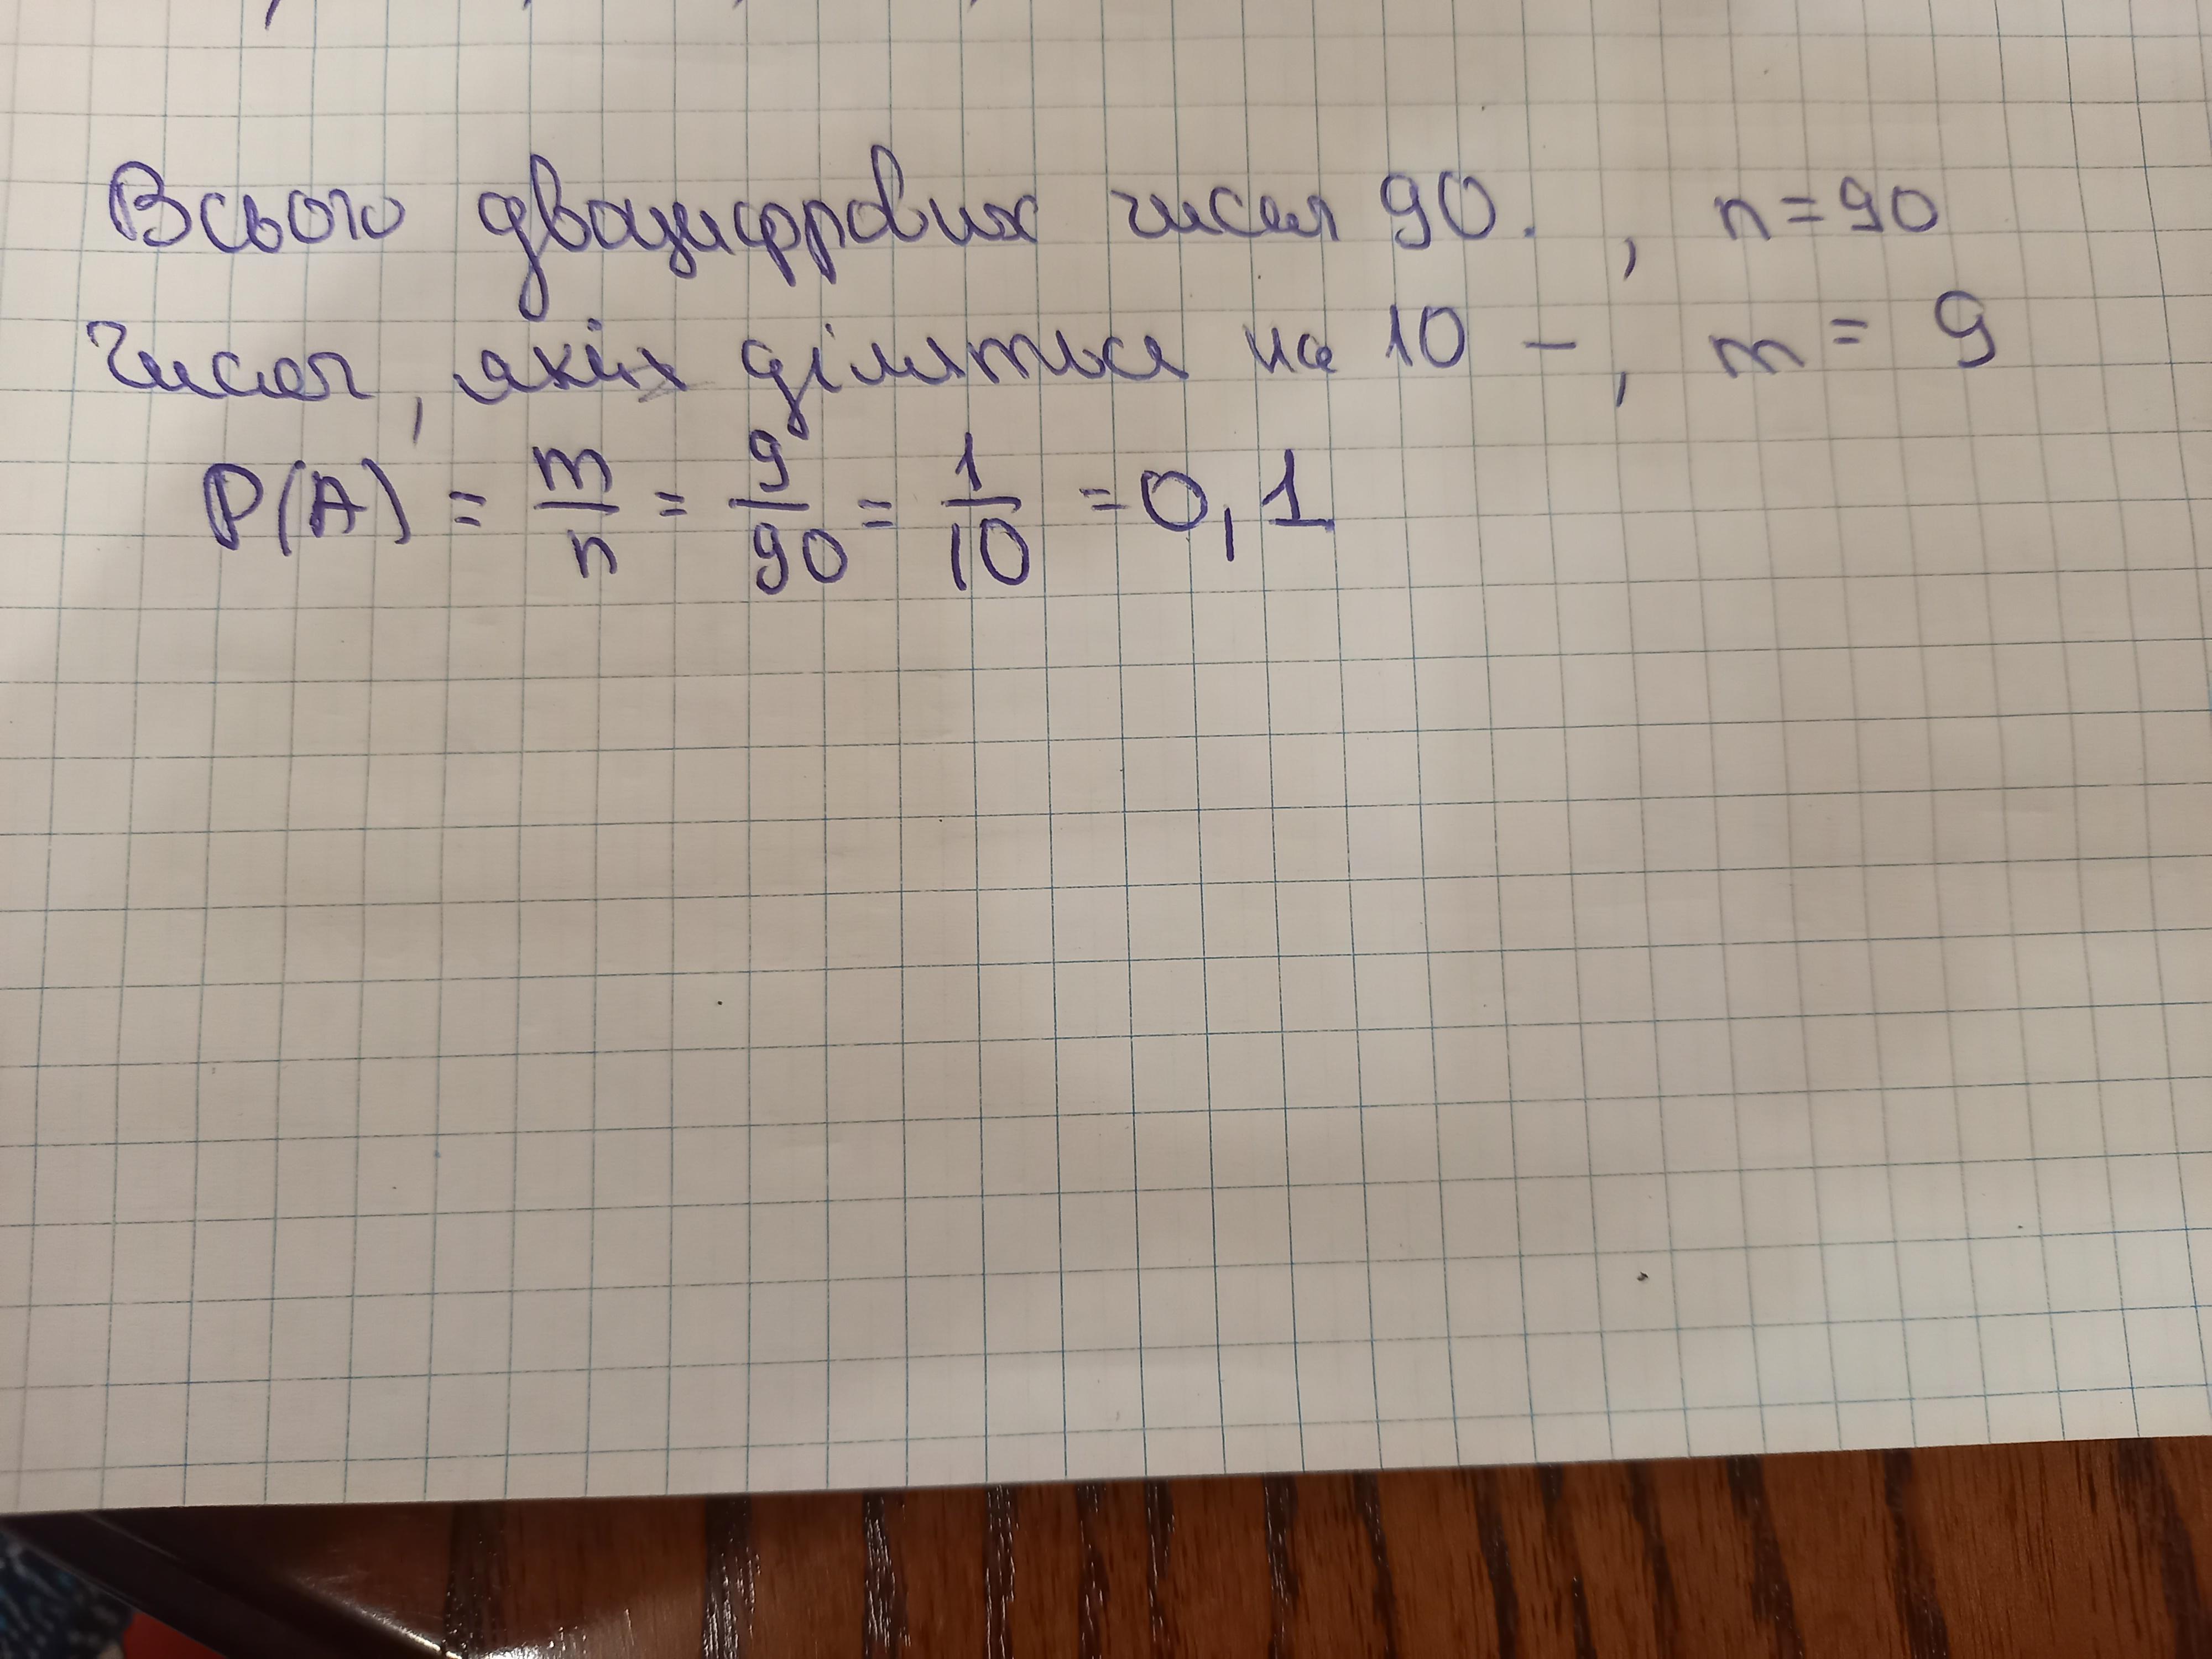 Всього двоцифрових чисел 90. , n = 90
Чисел, яких діляться на 10 – , m = 9
P(A) = m/n = 9/90 = 1/10 = 0,1